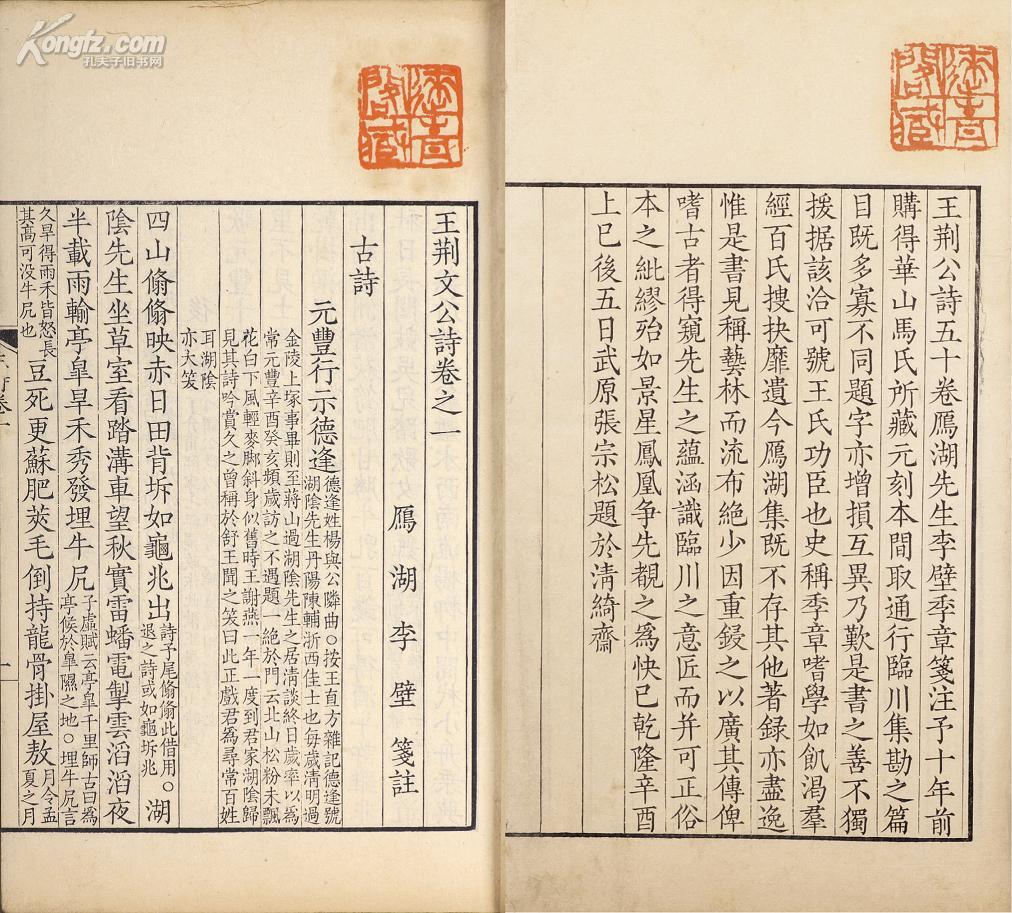 王荆公詩五十卷鴈湖先生李壁季章箋注予十年前
購得華山馬氏所藏元刻本間取通行臨川集勘之篇
目既多寡不同題字亦增損互異乃歎是書之善不獨
援据該洽可號王氏功臣也史稱季章嗜學如飢渴羣
經百氏搜抉靡遺今鴈湖集既不存其他著録亦盡逸
惟是書見稱藝林而流布絶少因重鋟之以廣其傳俾
嗜古者得窺先生之藴涵識臨川之意匠而并可正俗
本之紕繆殆如景星鳳凰争先覩之爲快已乾隆辛酉
上巳後五日武原張宗松題於清綺齋
王荆文公詩卷之一
鴈湖李壁箋註
古詩
元豐行示德逢
德逢姓楊與公隣曲○按王直方雜記德逢號
湖陰先生丹陽陳輔浙西佳士也每歲清明過
金陵上塚事畢則至蔣山過湖陰先生之居清談終日歲率以爲
常元豐辛酉癸亥頻歲訪之不遇題一絶於門云北山松粉未飄
花白下風輕麥脚斜身似舊時王謝燕一年一度到君家湖陰歸
見其詩吟賞久之曾稱於舒王聞之笑曰此正戲君爲尋常百姓
耳湖陰
亦大笑
四山翛翛映赤日田背坼如龜兆出
詩予尾翛翛此借用○
退之詩或如龜坼兆
湖
陰先生坐草室看踏溝車望秋實雷蟠電掣雲滔滔夜
半載雨輸亭皋旱禾秀發埋牛尻
子虛賦云亭皋千里師古曰爲
亭候於皋隰之地○埋牛尻言
久旱得雨禾皆怒長
其高可没牛尻也
豆死更蘇肥莢毛倒持龍骨掛屋敖
月令孟
夏之月
一
Kongfz.com
孔夫子旧书网